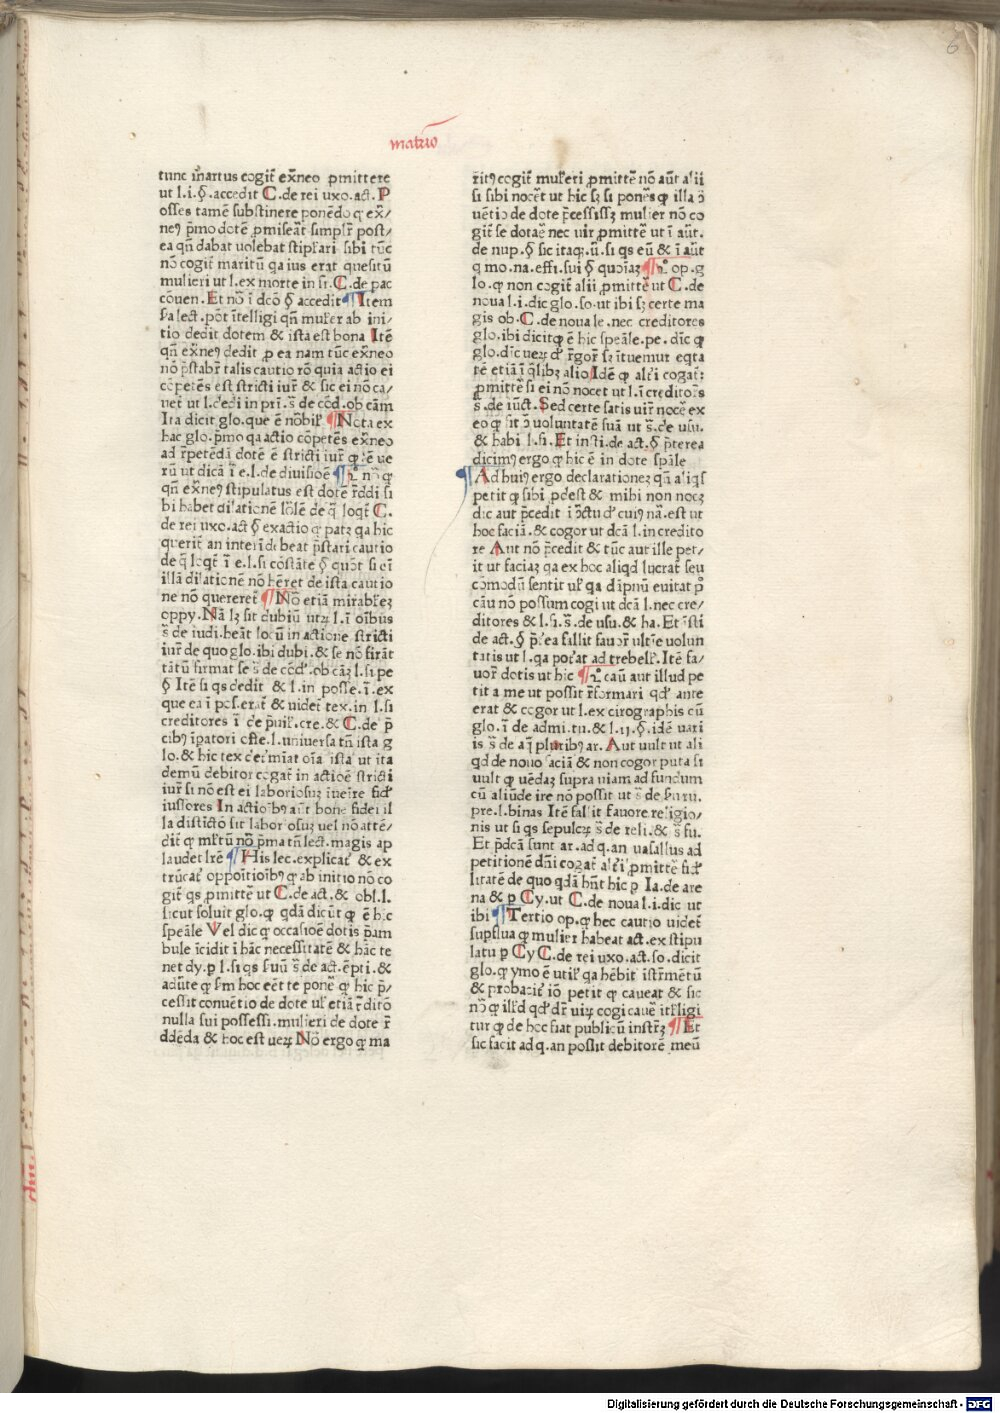 6
matrio
tunc maritus cogit̄ exn̄eo ꝓmittere
ut l.i.§.accedit C.de rei uxo.act.P
osses tamē substinere ponēdo ꝙ ex/
neꝯ p̄mo dotē ꝓmiseāt simpl̄r post/
ea qn̄ dabat uolebat stipl̄ari sibi tūc
nō cogit̄ maritū qa ius erat quesitū
mulieri ut l.ex morte in fi.C.de pac
cōuen.Et nō ī dcō § accedit ¶ Item
sa lect.pōt ītelligi qn̄ mul̄er ab ini/
tio dedit dotem & ista est bona Itē
qn̄ exn̄eꝯ dedit ꝓ ea nam tūc exn̄eo
nō p̄stabr̄ talis cautio rō quia actio ei
cōpetēs est stricti iur̄ & sic ei nō ca/
uet̄ ut l.dedi in pri.s̄ de cōd.ob cām
Ita dicit glo.que ē nōbil̄ ¶ Nota ex
hac glo.p̄mo qa actio cōpetēs exn̄eo
ad r̄petēdā dotē ē stricti iur̄ ꝙ ē ue
rū ut dicā ī e.l.de diuisiōe ¶ 2° nō ꝙ
qn̄ exn̄eꝯ stipulatus est dotē r̄ddi si
bi habet dilationē l̄ōlē de q̄ loqt̄ C.
de rei uxo.act § exactio ꝙ patꝫ qa hic
querit̄ an interī debeat p̄stari cautio
de q̄ loqt̄ ī e.l.si cōstāte § quōt si eī
illā dilationē nō hēret de ista cautio
ne nō quereret̄ ¶ Nō etiā mirabl̄eꝫ
oppy.Nā lꝫ sit dubiū utꝫ l.ī oībus
s̄ de iudi.beāt locū in actione stricti
iur̄ de quo glo.ibi dubi.& se nō firāt
tātū firmat se s̄ de cōd.ob cāꝫ l.si pe
§ Itē si qs dedit & l.in posse.ī.ex
que ea ī pos.erat̄ & uidet̄ tex.in l.si
creditores ī de p̄uil̄.cre.& C.de p̄
cibꝯ īpatori offe.l.uniuersa tn̄ ista g
lo.& hic tex det̄miat oīa ista ut ita
demū debitor cogat̄ in actiōē stricti
iur̄ si nō est ei laboriosuꝫ īueīre fid̄
iussores In actioībꝯ aūt bone fidei il
la distictō sit laboriosuꝫ uel nō attē/
dit̄ ꝙ ml̄tū nō p̄ma tn̄ lect.magis ap
laudet lr̄ē ¶ His lec.explicat̄ & ex
trūcat̄ oppōtioībꝯ ꝙ ab initio nō co
git̄ qs ꝓmittē ut C.de act.& obl.l.
sicut soluit glo.ꝙ qdā dicūt ꝙ ē hic
speāle Vel dic ꝙ occasiōē dotis p̄am
bule īcidit ī hāc necessitatē & hāc te
net dy.ꝑ l.si qs suū s̄ de act.ēpti.&
adūte ꝙ s̄m hoc eēt te ponē ꝙ hic p̄/
cessit conuētio de dote ul̄ etiā r̄ditō
nulla sui possessi.mulieri de dote r̄
ddēda & hoc est ueꝝ Nō ergo ꝙ ma
r̄itꝯ cogit̄ mul̄eri ꝓmittē nō aūt alii
si sibi nocet̄ ut hic sꝫ si ponēs ꝙ illa ↄ̄
uētio de dote p̄cessissꝫ mulier nō co
git̄ se dotaē nec uir ꝓmittē ut ī aūt.
de nup.§ sic itaqꝫ.ū.si qs eū & ī aūt
q mo.na.effi.sui § quoīaꝫ ¶ 2° op.g
lo.ꝙ non cogit̄ alii ꝓmittē ut C.de
noua l.i.dic glo.so.ut ibi sꝫ certe ma
gis ob.C.de noua le.nec creditores
glo.ibi dicitꝙ ē hic speāle.pe.dīc ꝙ
glo.dīc ueꝝ d̄ r̄gor̄ sꝫ ītuemur eqta
tē etiā ī ql̄ibꝫ alio Idē ꝙ al̄ri cogat̄:
ꝓmittē si ei nō nocet ut l.ī creditor̄s
s̄.de iūct.Sed certe satis uir̄ nocē ex
eo ꝙ sit ↄ̄ uoluntatē suā ut s̄.de usu.
& habi l.si.Et insti.de act.§ p̄terea
dicimꝯ ergo ꝙ hic ē in dote spāle
¶ Ad huiꝯ ergo declarationeꝫ qn̄ aliqs
petit ꝙ sibi ꝓdest & mihi non nocꝫ
dic aut p̄cedit ī ↄ̄ctu d̄ cuiꝯ nā.est ut
hoc faciā.& cogor ut dcā l.in credito
re Aut nō p̄cedit & tūc aut ille pet/
it ut faciaꝫ qa ex hoc aliqd lucrat̄ seu
cōmodū sentit ul̄ qa dāpnū euitat p°
cāu nō possum cogi ut dcā l.nec cre/
ditores & l.si.s̄.de usu.& ha.Et īsti
de act.§ p̄t̄ea fallit fauor̄ ultīe uolun
tatis ut l.qa poterat ad trebell̄.Itē fa/
uor̄ dotis ut hic ¶ 2° caū aut illud pe
tit a me ut possit r̄formari qd̄ ante
erat & cogor ut l.ex cirographis cū
glo.ī de admi.tu.& l.ij.§.idē uari
is s̄ de aq̄ pluribꝯ ar.Aut uult ut ali
qd de nouo faciā & non cogor puta si
uult ꝙ uēdaꝫ supra uiam ad fundum
cū aliūde ire nō possit ut s̄ de seru.ru.
pre.l.binas Itē fallit fauore religio/
nis ut si qs sepulcꝝ s̄ de reli.& s̄ fu.
Et p̄dcā sunt ar.ad q.an uasallus ad
petitionē dn̄i cogat̄ al̄ri ꝓmittē fid̄
litatē de quo qdā hn̄t hic ꝑ Ia.de are
na & ꝑ Cy.ut C.de noua l.i.dic ut
ibi ¶ Tertio op.ꝙ hec cautio uidet̄
supflua ꝙ mulier habeat act.ex stipu
latu ꝑ Cy C.de rei uxo.act.so.dicit
glo.ꝙ ymo ē util̄ qa hēbit īstr̄mētū
& probacit̄ iō petit ꝙ caueat & sic
nō ꝙ ill̄d qd̄ dr̄ uiꝝ cogi cauē īt̄lligi
tur ꝙ de hoc fiat publicū instr̄ꝫ ¶ Et
sic facit ad q.an possit debitorē meū
Digitalisierung gefördert durch die Deutsche Forschungsgemeinschaft - DFG